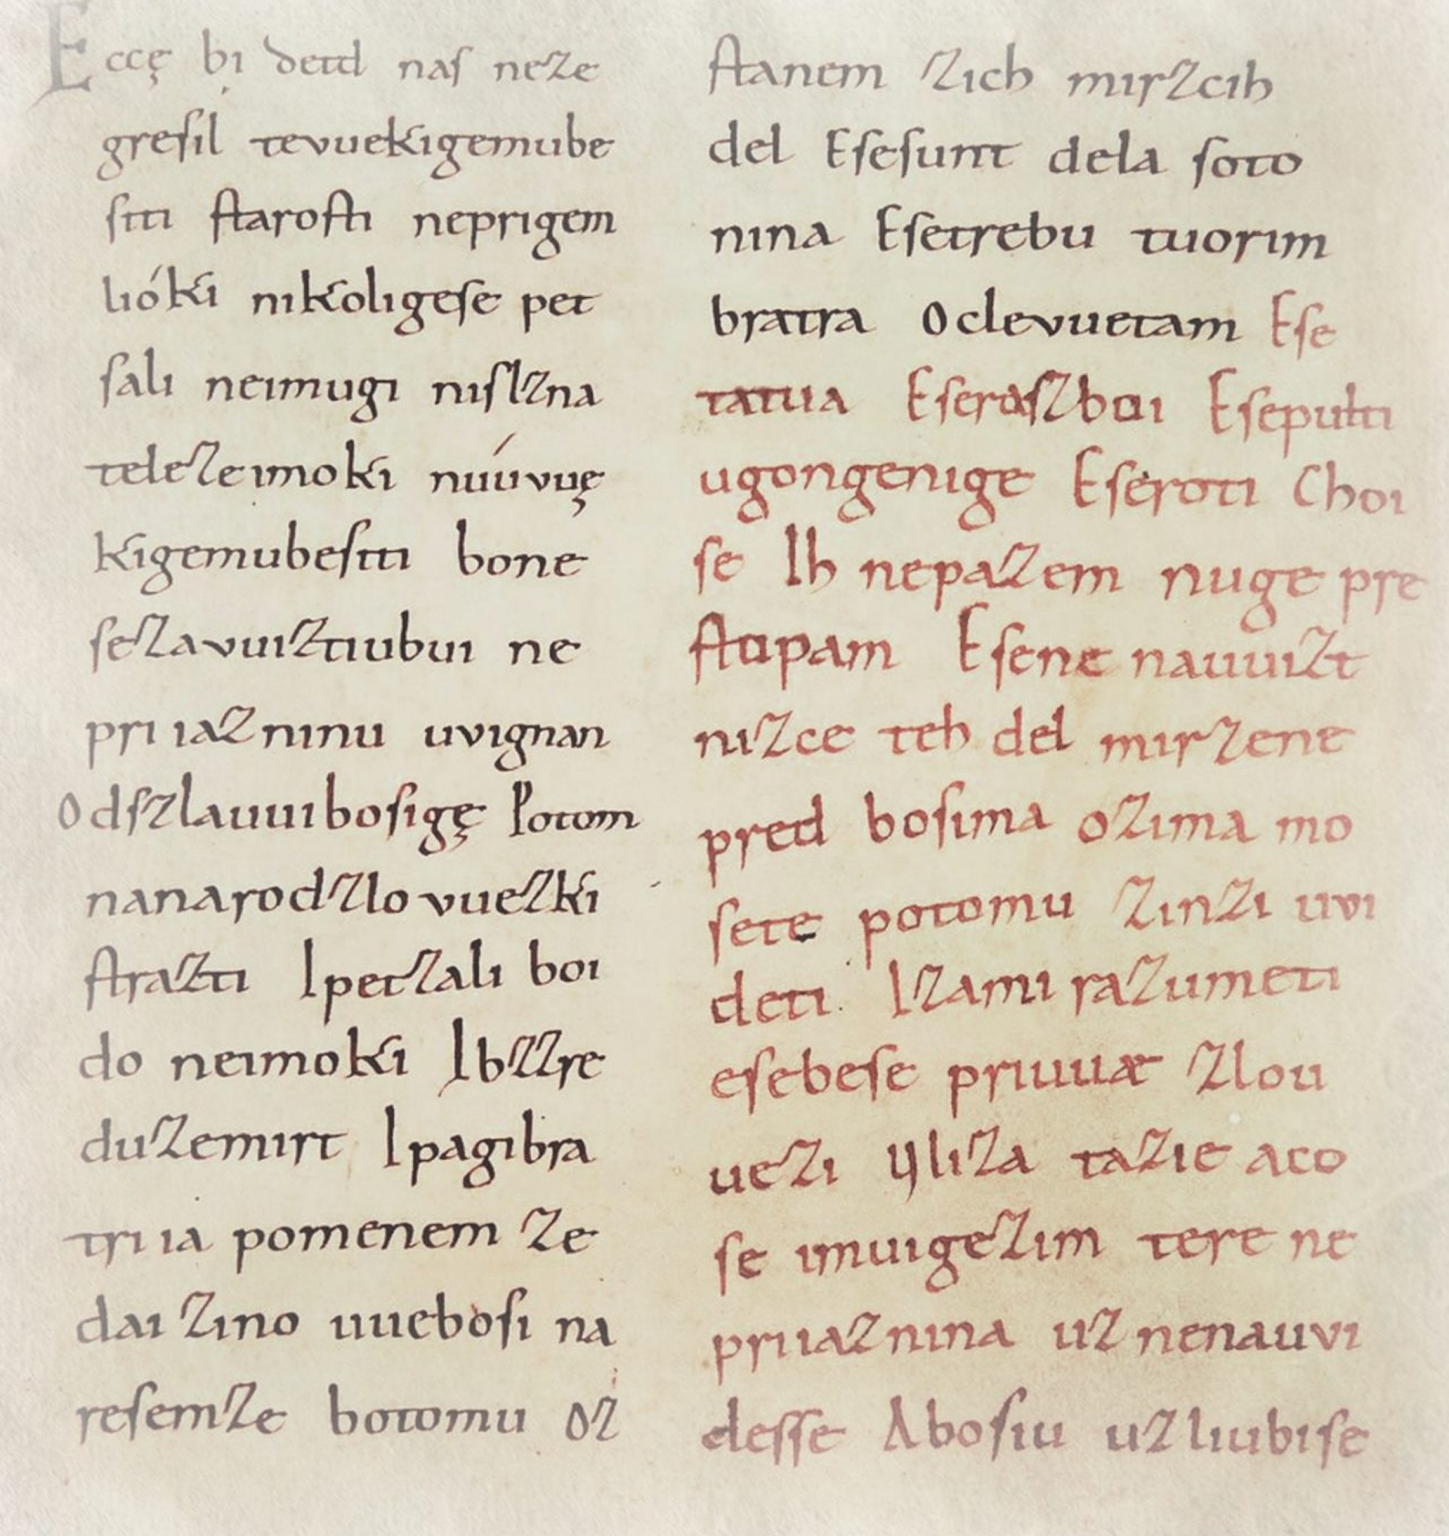 Eccę bi detd naſ neze
greſil tevuekigemube
ſiti ſtaroſti neprigem
lióki nikoligeſe pet
ſali neimugi niſlzna
teleze imoki nuúvuę
kigemubeſiti bone
ſezavuiztiubui ne
pri iazninu uvignan
Odſzlauuiboſigę Potom
nanarodzlovuezki
ſtrazti Ipetzali boi
do neimoki Ibzzre
duzemirt Ipagibra
tri ia pomenem ze
dai zino uueboſi na
reſemze botomu oz
ſtanem zich mirzcih
del Eſeſunt dela ſoto
nina Eſetrebu tuorim
bratra Oclevuetam Eſe
tatua Eſeraſzboi Eſepulti
ugongenige Eſeroti Choi
ſe Ih nepazem nuge pre
ſtopam Eſene nauuizt
nizce teh del mirzene
pred boſima ozima mo
ſete potomu zinzi uvi
deti. Izami razumeti
eſebeſe priuuæ zlou
uezi Ỵliza tazie aco
ſe imuigezim tere ne
priiaznina uz nenauvi
deſſe Aboſiu uzliubiſe